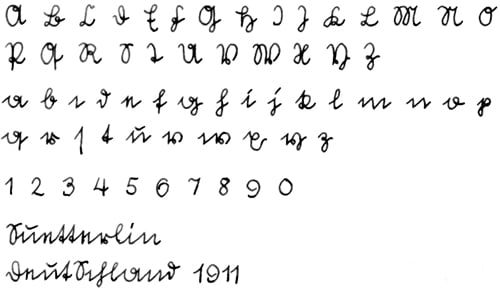 A B C D E F G H I J K L M N O
P Q R S T U V W X Y Z
a b c d e f g h i j k l m n o p
q r ſ t u v w x y z
1 2 3 4 5 6 7 8 9 0
Suetterlin
Deutschland 1911